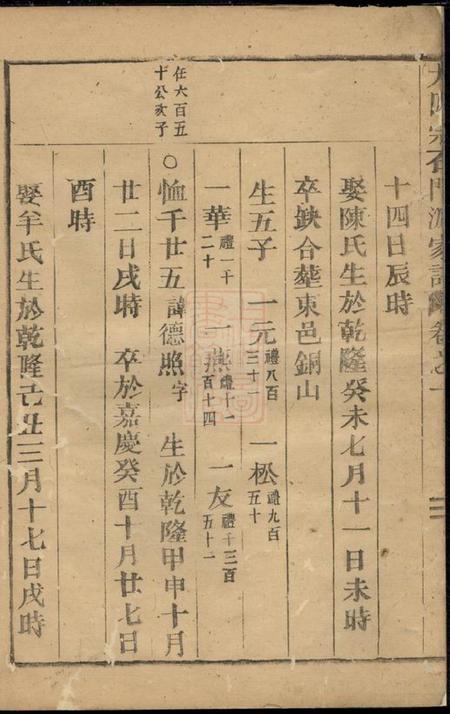 宗石門派家譜 卷之一
十四日辰時
娶陳氏生於乾隆癸未七月十一日未時
卒鈌合塟東邑銅山
生五子 一元禮八百三十一 一松禮九百五十
一華禮一千二十 一燕禮十一百十四 一友禮千三百五十一
任六百五十公亥子
〇恤千廿五諱德照字 生於乾隆甲申十月
廿二日戌時 卒於嘉慶癸酉十月廿七日
酉時
娶牟氏生於乾隆己丑三月十七日戌時